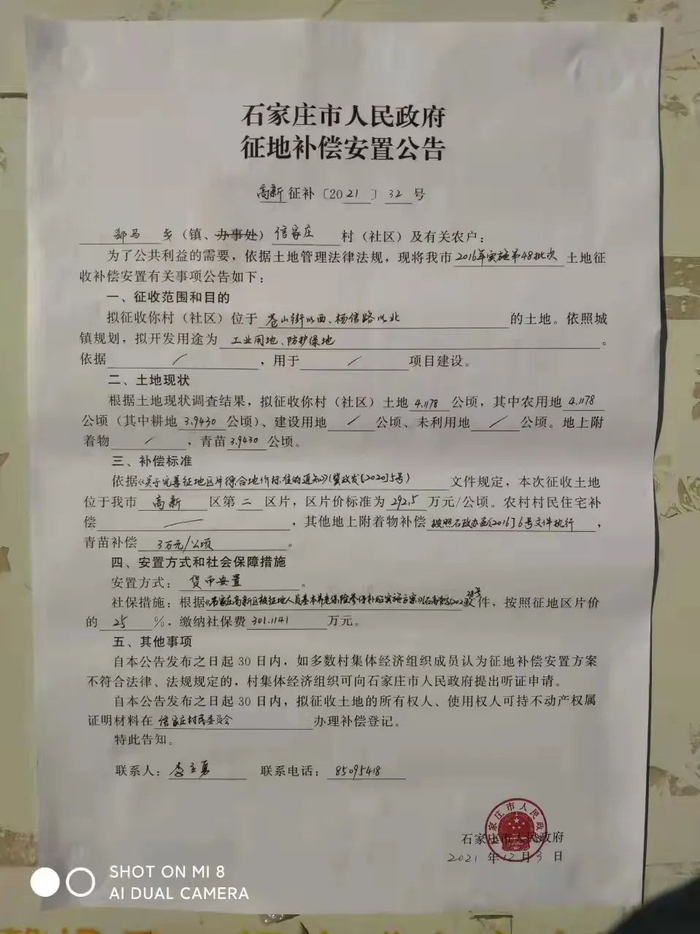 石家庄市人民政府
征地补偿安置公告
高新征补〔2021〕32号
郄马乡（镇、办事处）信家庄村（社区）及有关农户：
为了公共利益的需要，依据土地管理法律法规，现将我市2016年实施第48批次土地征
收补偿安置有关事项公告如下：
一、征收范围和目的
拟征收你村（社区）位于苍山街以西、杨信路以北的土地。依照城
镇规划，拟开发用途为工业用地、防护绿地。
依据/，用于/项目建设。
二、土地现状
根据土地现状调查结果，拟征收你村（社区）土地4.1178公顷，其中农用地4.1178
公顷（其中耕地3.9430公顷）、建设用地/公顷、未利用地/公顷。地上附
着物/，青苗3.9430公顷。
三、补偿标准
依据《关于完善征地区片综合地价标准的通知》(冀政发[2020]5号)文件规定，本次征收土地
位于我市高新区第二区片，区片价标准为292.5万元/公顷。农村村民住宅补
偿/，其他地上附着物补偿按照石政办函[2016]6号文件执行，
青苗补偿3万元/公顷。
四、安置方式和社会保障措施
安置方式：货币安置。
社保措施：根据《石家庄高新区被征地人员基本养老保险参保补贴实施方案》文件，按照征地区片价
的25%，缴纳社保费301.1141万元。
五、其他事项
自本公告发布之日起30日内，如多数村集体经济组织成员认为征地补偿安置方案
不符合法律、法规规定的，村集体经济组织可向石家庄市人民政府提出听证申请。
自本公告发布之日起30日内，拟征收土地的所有权人、使用权人可持不动产权属
证明材料在信家庄村民委员会办理补偿登记。
特此告知。
联系人：李立勇 联系电话：85095418
石家庄市人民政府
2021年12月3日
SHOT ON MI 8
AI DUAL CAMERA